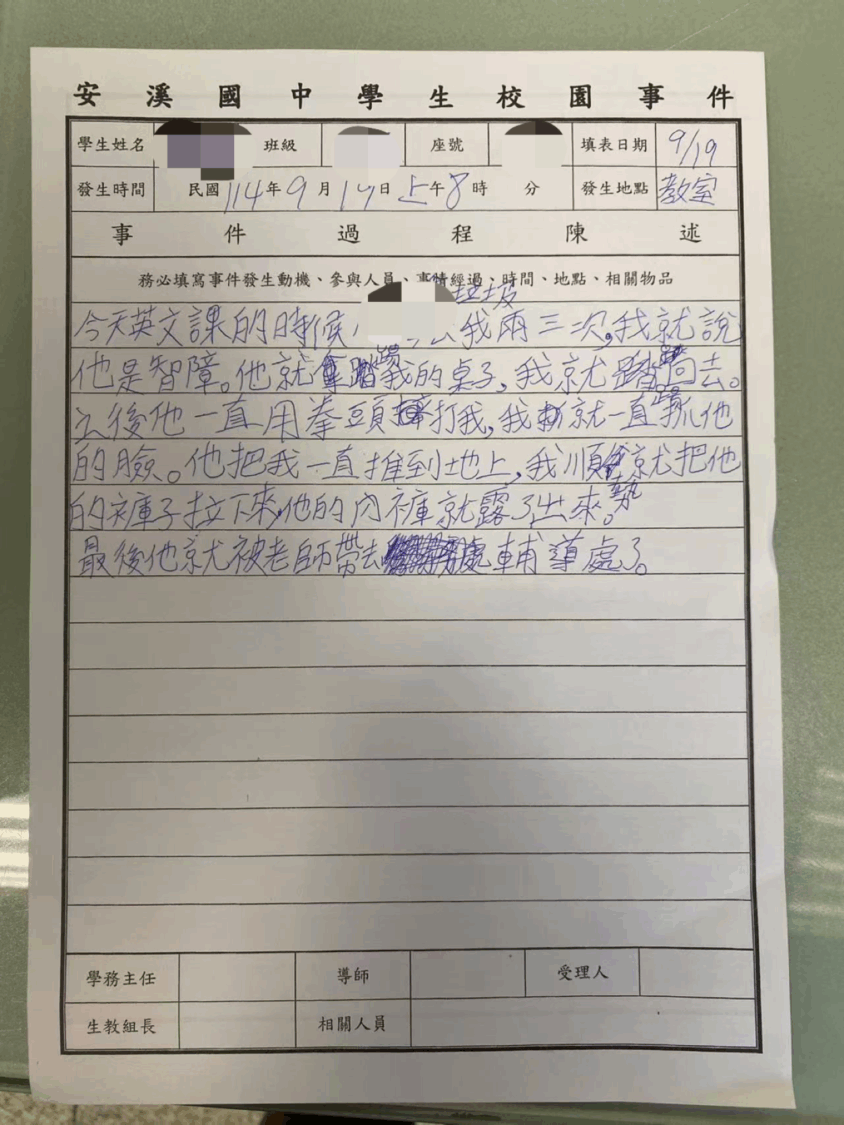 安溪國中學生校園事件
學生姓名 班級 座號 填表日期 9/19
發生時間 民國114年9月19日上午8時 分 發生地點 教室
事件過程陳述
務必填寫事件發生動機、參與人員、事情經過、時間、地點、相關物品
垃圾
今天英文課的時候 我兩三次,我就說
他是智障。他就踢我的桌子,我就踢回去。
之後他一直用拳頭打我,我就一直抓他
的臉。他把我一直推到地上,我順勢就把他
的褲子拉下來,他的內褲就露了出來。
最後他就被老師帶去 輔導處了。
學務主任 導師 受理人
生教組長 相關人員